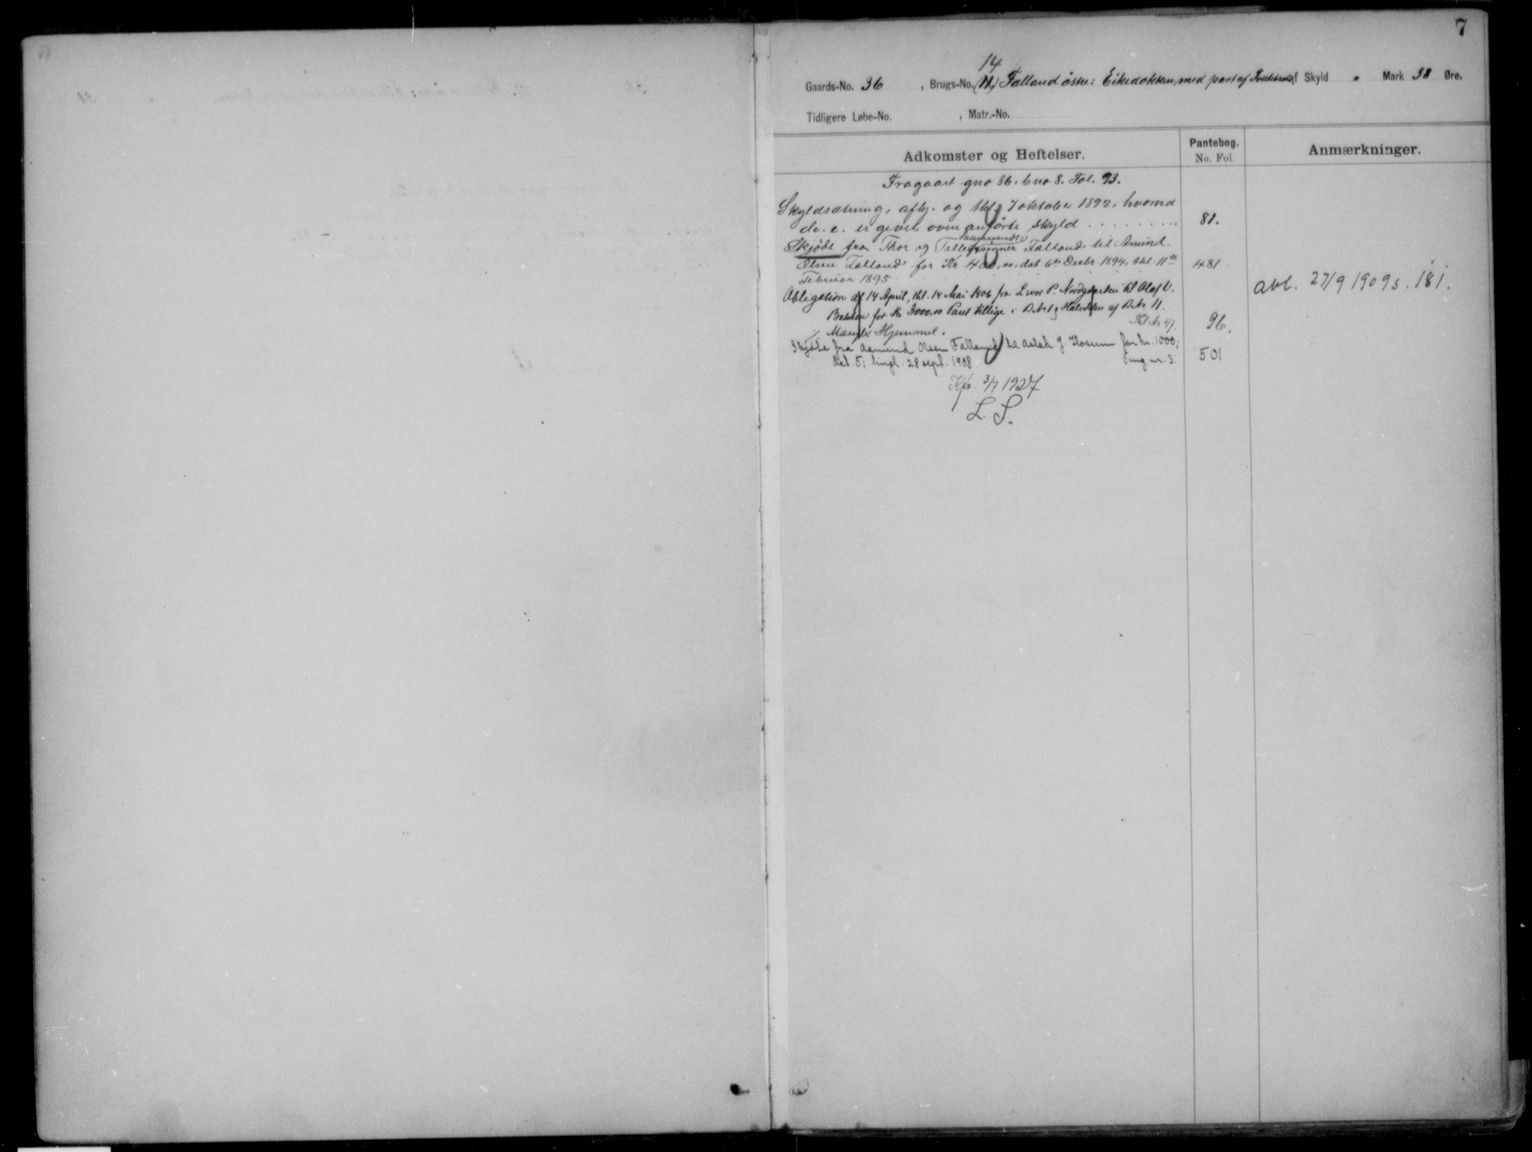 7
14
Gaards-No. 36, Brugs-No. Fatland østre: Eikedokken, med part af Skyld " Mark 38 Øre.
Tidligere Løbe-No. , Matr.-No.
Adkomster og Heftelser.
Pantebog.
No. Fol.
Anmærkninger.
Fragaaet gno 36. bno 8. Fol. 93.
Skyldsætning, afhj. og thl. 7 oktober 1892, hvorved
de. e. er given oven anførte skyld 81.
Skjøde fra Thor og Fatland til Amund
Olsen Fatland for Kr 400, 00, dat 6te Decbr 1894, thl. 11te 481
Februar 1895
Obligation af 14 April, thl. 14 Mai 1906 fra P. Nordgaarden til Olaf O.
for Kr 3000,00 Pant tillige i B.No 1 og Halvdelen af B.No 11. 96.
Mangler Hjemmel.
avl. 27/9 1909 s. 181.
Skjøte fra Aamund Olsen Fatland til Aslak J. for kr. 1000,
dat. 5, tingl. 28 sept. 1908 Ting nr. 3. 501
Kfr. 3/7 1927
L. S.